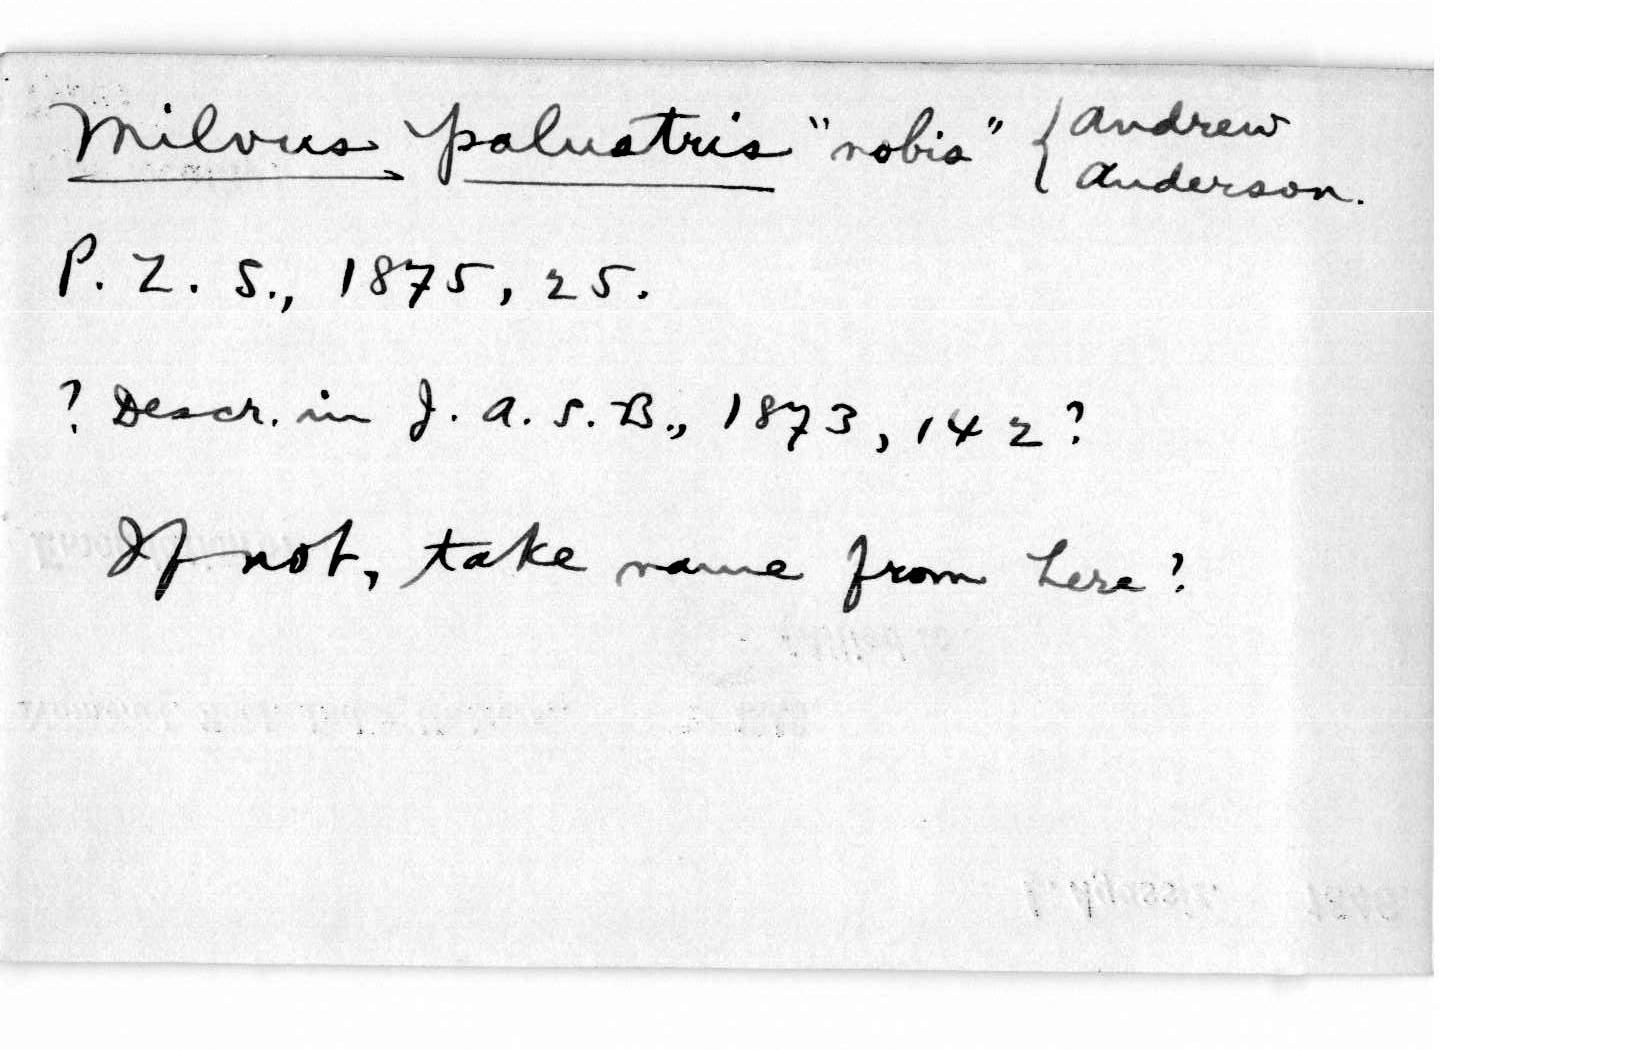 Milvus palustris "nobis" { Andrew
Anderson.
P. Z. S., 1875, 25.
? Descr. in J. A. S. B., 1873, 142?
If not, take name from here?